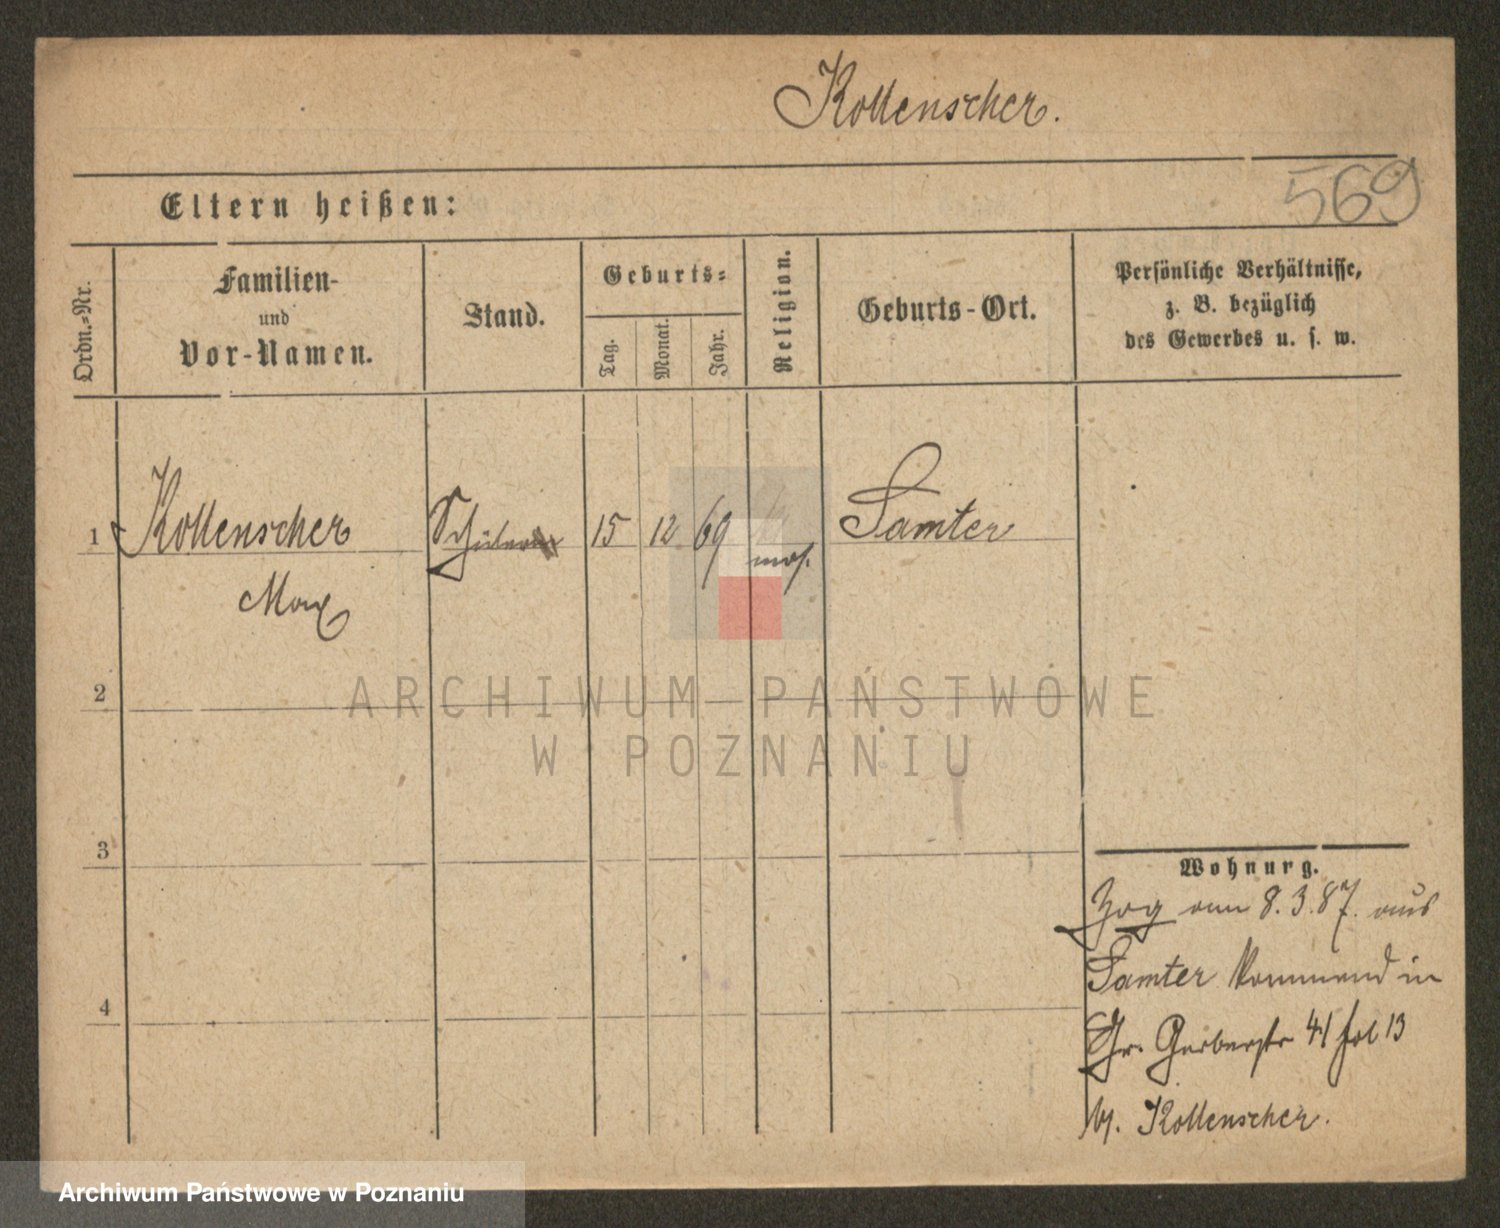 Kollenscher.
569
Eltern heißen:
Ordn.=Nr.
Familien-
und
Vor-Namen.
Stand.
Geburts=
Tag.
Monat.
Jahr.
Religion.
Geburts-Ort.
Persönliche Verhältnisse,
z. B. bezüglich
des Gewerbes u. s. w.
1 Kollenscher Schüler 15 12 69 mos. Samter
Max
2
ARCHIWUM PAŃSTWOWE
W POZNANIU
3
Wohnung.
Zog am 8.3.87. aus
Samter kommend in
4
Gr. Gerberstr 41 fol 13
Kollenscher.
Archiwum Państwowe w Poznaniu